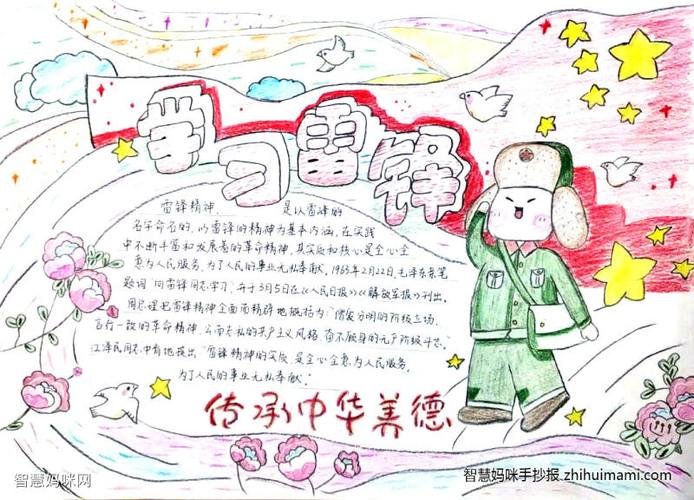 学习雷锋
雷锋精神,是以雷锋的
名字命名的,以雷锋的精神为基本内涵,在实践
中不断丰富和发展着的革命精神,其实质和核心是全心全
意为人民服务,为了人民的事业无私奉献。1963年2月22日,毛泽东亲笔
题词"向雷锋同志学习",并于3月5日在《人民日报》《解放军报》刊出,
周总理把雷锋精神全面而精辟地概括为"憎爱分明的阶级立场、
言行一致的革命精神、公而忘私的共产主义风格、奋不顾身的无产阶级斗志。"
江泽民同志中有地提出"雷锋精神的实质是全心全意为人民服务,
为了人民的事业无私奉献"
传承中华美德
智慧妈咪网
智慧妈咪手抄报.zhihuimami.com